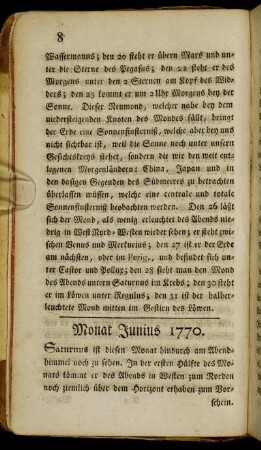 8
Wassermanns; den 20 steht er übern Mars und un-
ter die Sterne des Pegasus; den 22 steht er des
Morgens unter den 2 Sternen am Kopf des Wid-
ders; den 25 kommt er um 2 Uhr Morgens bey der
Sonne. Dieser Neumond, welcher nahe bey dem
niedersteigenden Knoten des Mondes fällt, bringt
der Erde eine Sonnenfinsterniß, welche aber bey uns
nicht sichtbar ist, weil die Sonne noch unter unsern
Gesichtskreys stehet, sondern die wir den weit ent-
legenen Morgenländern: China, Japan und in
den dasigen Gegenden des Südmeeres zu betrachten
überlassen müssen, welche eine centrale und totale
Sonnenfinsterniß beobachten werden. Den 26 läßt
sich der Mond, als wenig erleuchtet des Abends nie-
drig in West Nord-Westen wieder sehen; er steht zwi-
schen Venus und Merkurius; den 27 ist er der Erde
am nächsten, oder im Perig. und befindet sich un-
ter Castor und Pollux; den 28 sieht man den Mond
des Abends untern Saturnus im Krebs; den 30 steht
er im Löwen unter Regulus; den 31 ist der halber-
leuchtete Mond mitten im Gestirn des Löwen.
Monat Junius 1770.
Saturnus ist diesen Monat hindurch am Abend-
himmel noch zu sehen. In der ersten Hälfte des Mo-
nats kömmt er des Abends in Westen zum Norden
noch ziemlich über dem Horizont erhaben zum Vor-
schein.